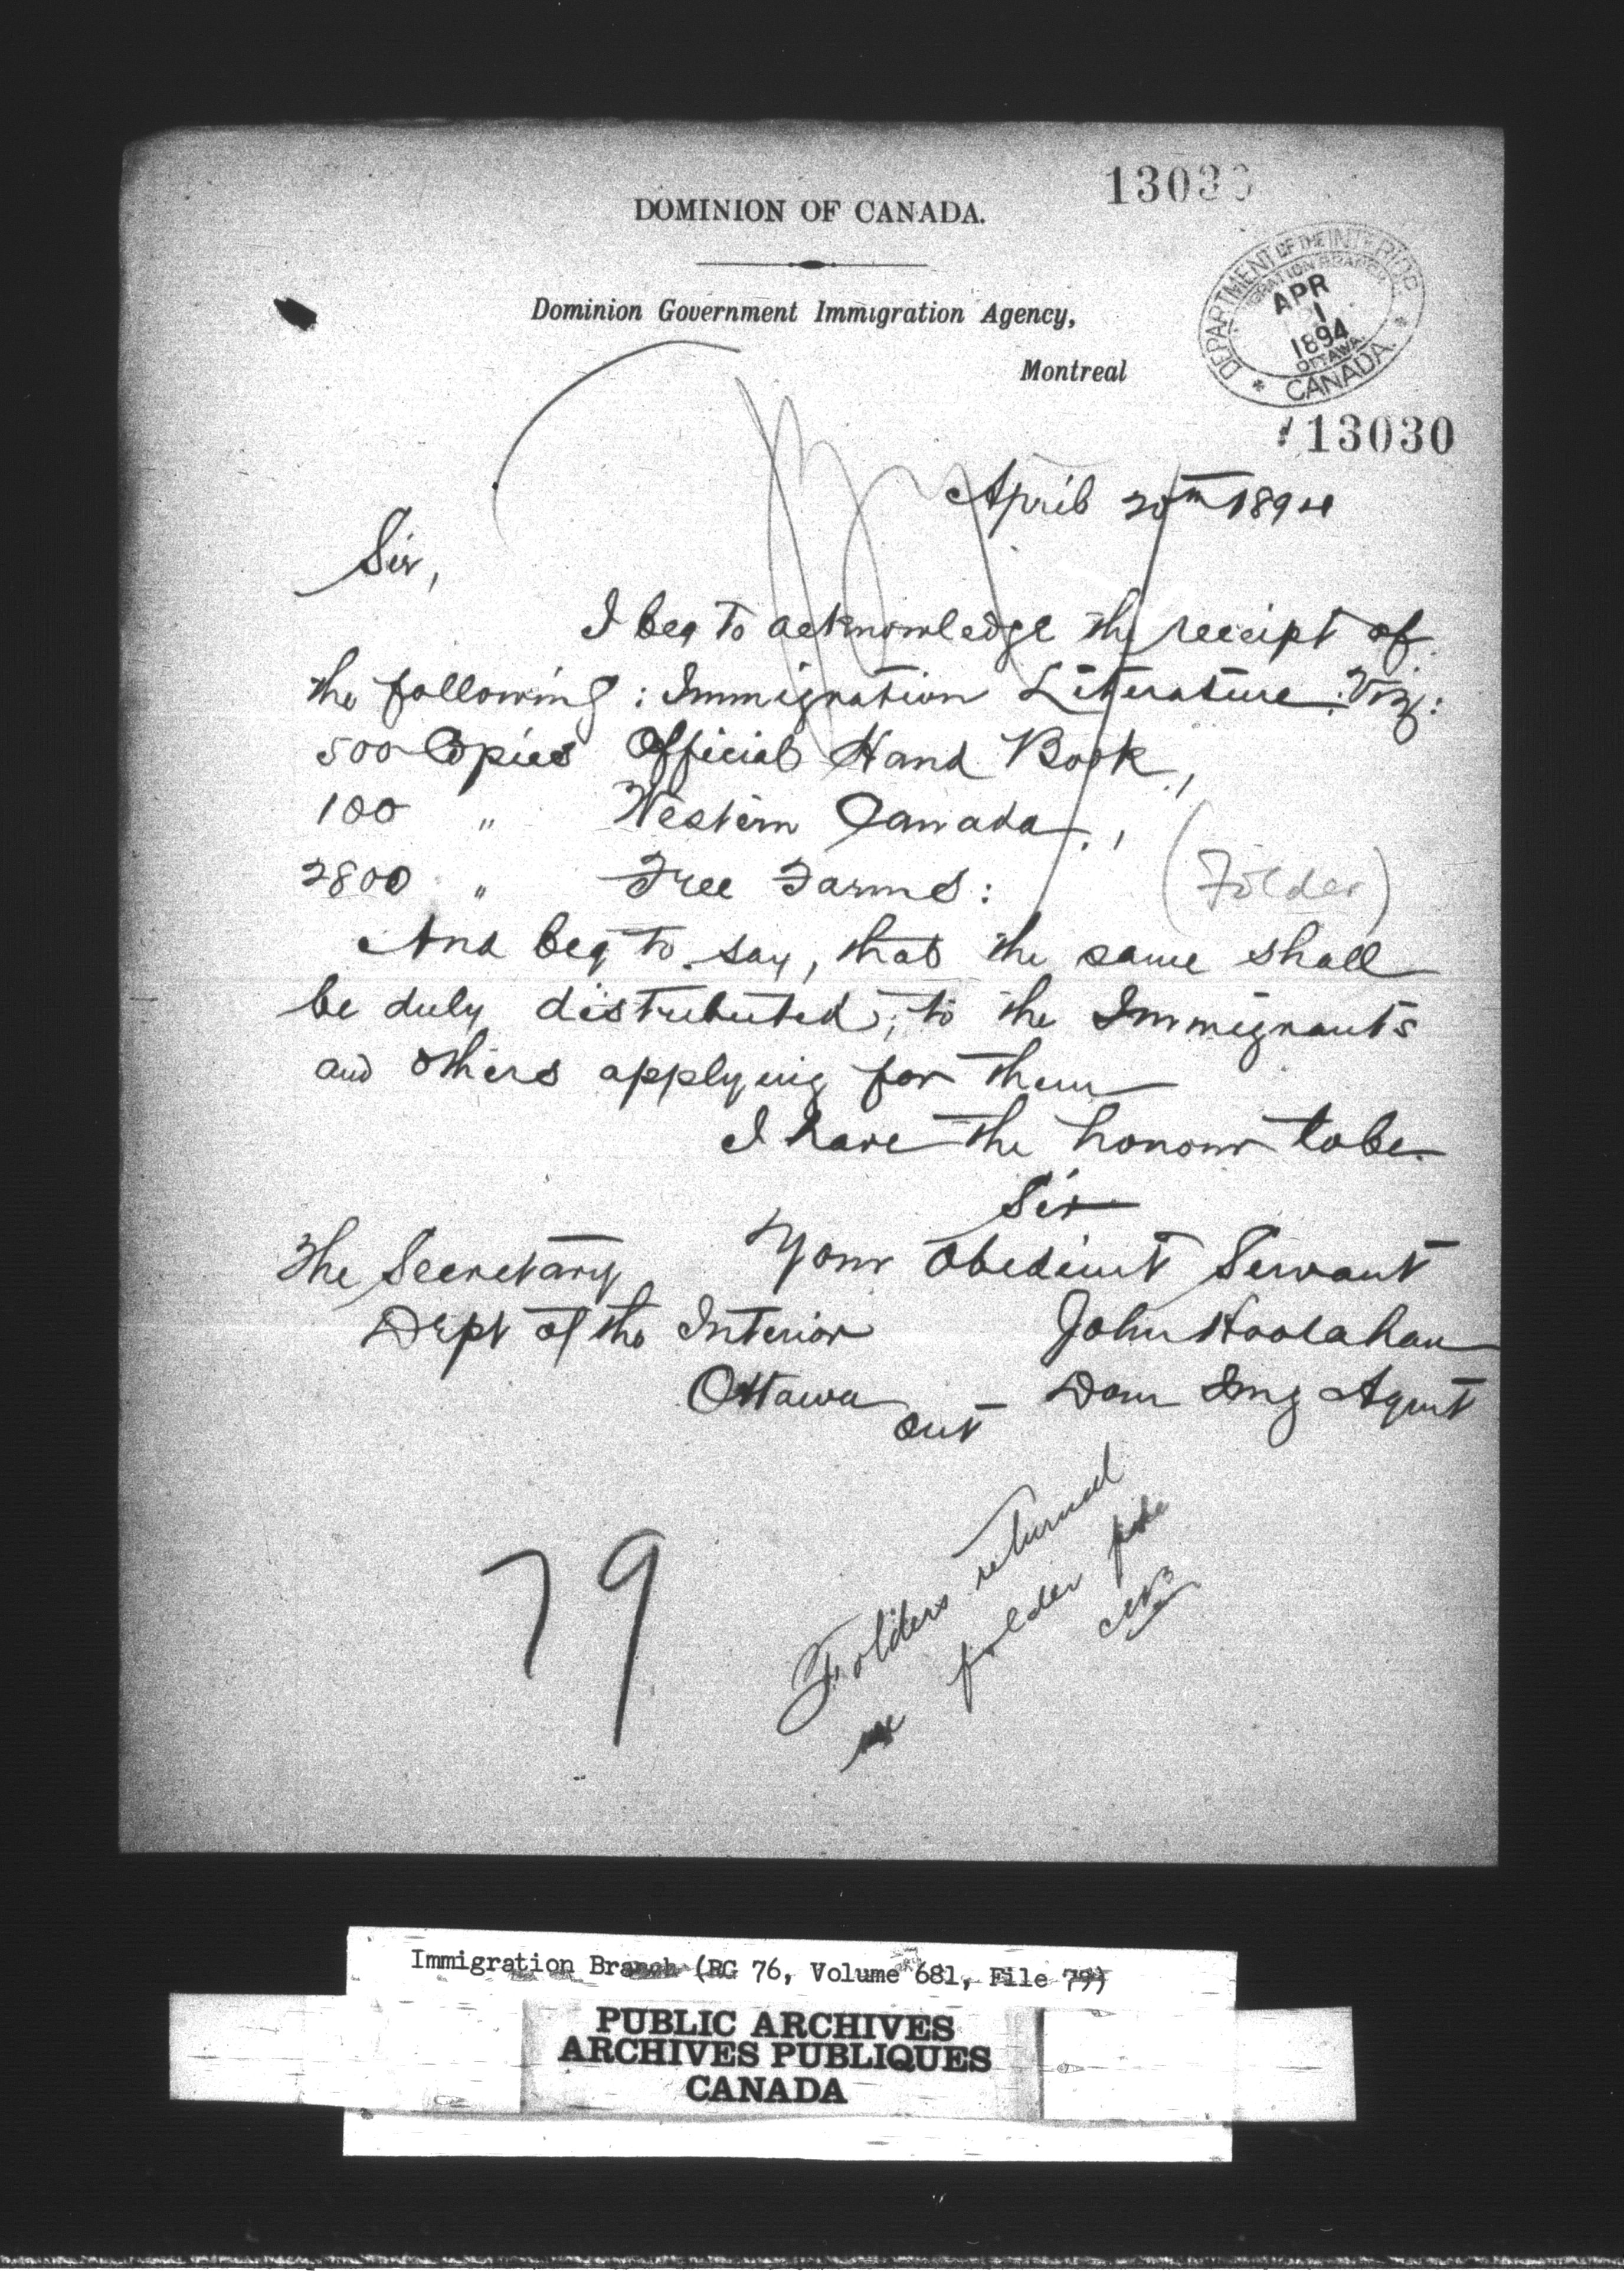 13030
DOMINION OF CANADA.
DEPARTMENT OF THE INTERIOR
APR
1
1894
OTTAWA
CANADA.
Dominion Government Immigration Agency,
Montreal
13030
April 20th 1894
Sir,
I beg to acknowledge the receipt of
the following: Immigration Literature. Viz:
500 Copies Official Hand Book,
100 " Western Canada,
2800 " Free Farms: (Folder)
And beg to say, that the same shall
be duly distributed, to the Immigrants
and others applying for them
I have the honour to be
Sir
Your Obedient Servant
The Secretary
Dept of the Interior
Ottawa
Ont
John Hoolahan
Dom Img Agent
79
Folders returned
see folder file
Immigration Branch (RG 76, Volume 681, File 79)
PUBLIC ARCHIVES
ARCHIVES PUBLIQUES
CANADA